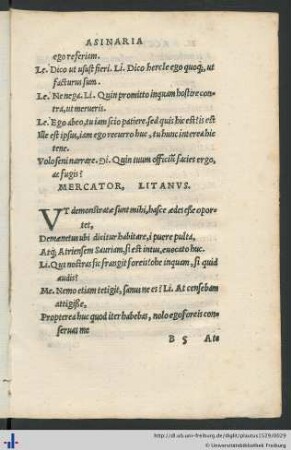 ASINARIA
ego referum.
Le. Dico ut usust fieri. Li. Dico hercle ego quoq;, ut
facturus sum.
Le. Ne nega. Li. Quin promitto inquam hostire con
tra, ut merueris.
Le. Ego abeo, tu iam scio patiere. sed quis hic est? is est
Ille est ipsus, iam ego recurro huc, tu hunc interea hic
tene.
Volo seni narrare. Di. Quin tuum officiũ facies ergo,
ac fugis?
MERCATOR, LITANVS.
VT demonstratæ sunt mihi, hasce ædeis esse opor
tet,
Demænetus ubi dicitur habitare, i puere pulta,
Atq; Atriensem Sauriam, si est intus, euocato huc.
Li. Quis nostras sic frangit foreis? ohe inquam, si quid
audis?
Me. Nemo etiam tetigit, sanus ne es? Li. At censebam
attigisse,
Propterea huc quod iter habebas, nolo ego foreis con
seruas me
B 5 A te
http://dl.ub.uni-freiburg.de/diglit/plautus1529/0029
© Universitätsbibliothek Freiburg